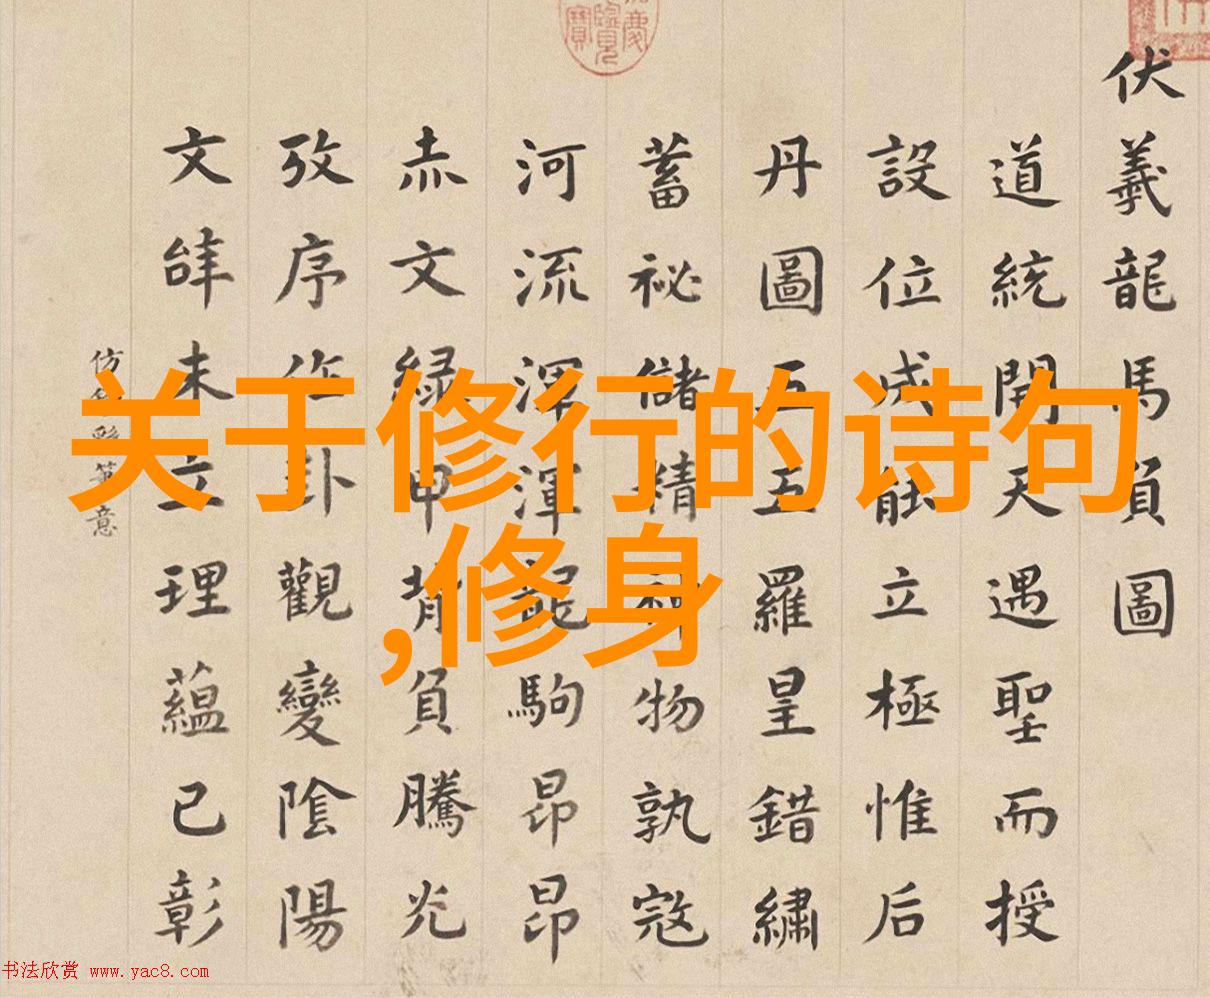 伏羲龍馬負圖
道統開天遇聖而授
設位成能立極惟后
丹圖五五羅皇錯繡
蓄祕儲精神物孰寇
河流渾渾龍駒昂昂
赤文綠甲背負騰光
攷序作卦觀變陰陽
文辝未立理蘊已彰
仿筆意
关于修行的诗句
,修身
书法欣赏 www.yac8.com